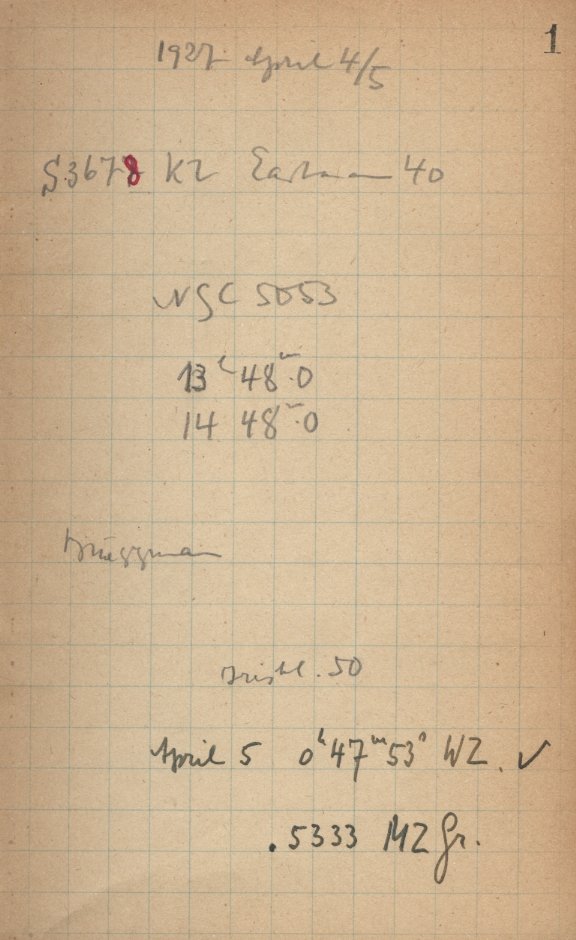 1
1927 April 4/5
S3678 KZ Eastman 40
NGC 5053
13ʰ 48ᵐ.0
14 48ᵐ.0
50
April 5 0ʰ47ᵐ53ˢ WZ. ✓
.5333 MZ Gr.